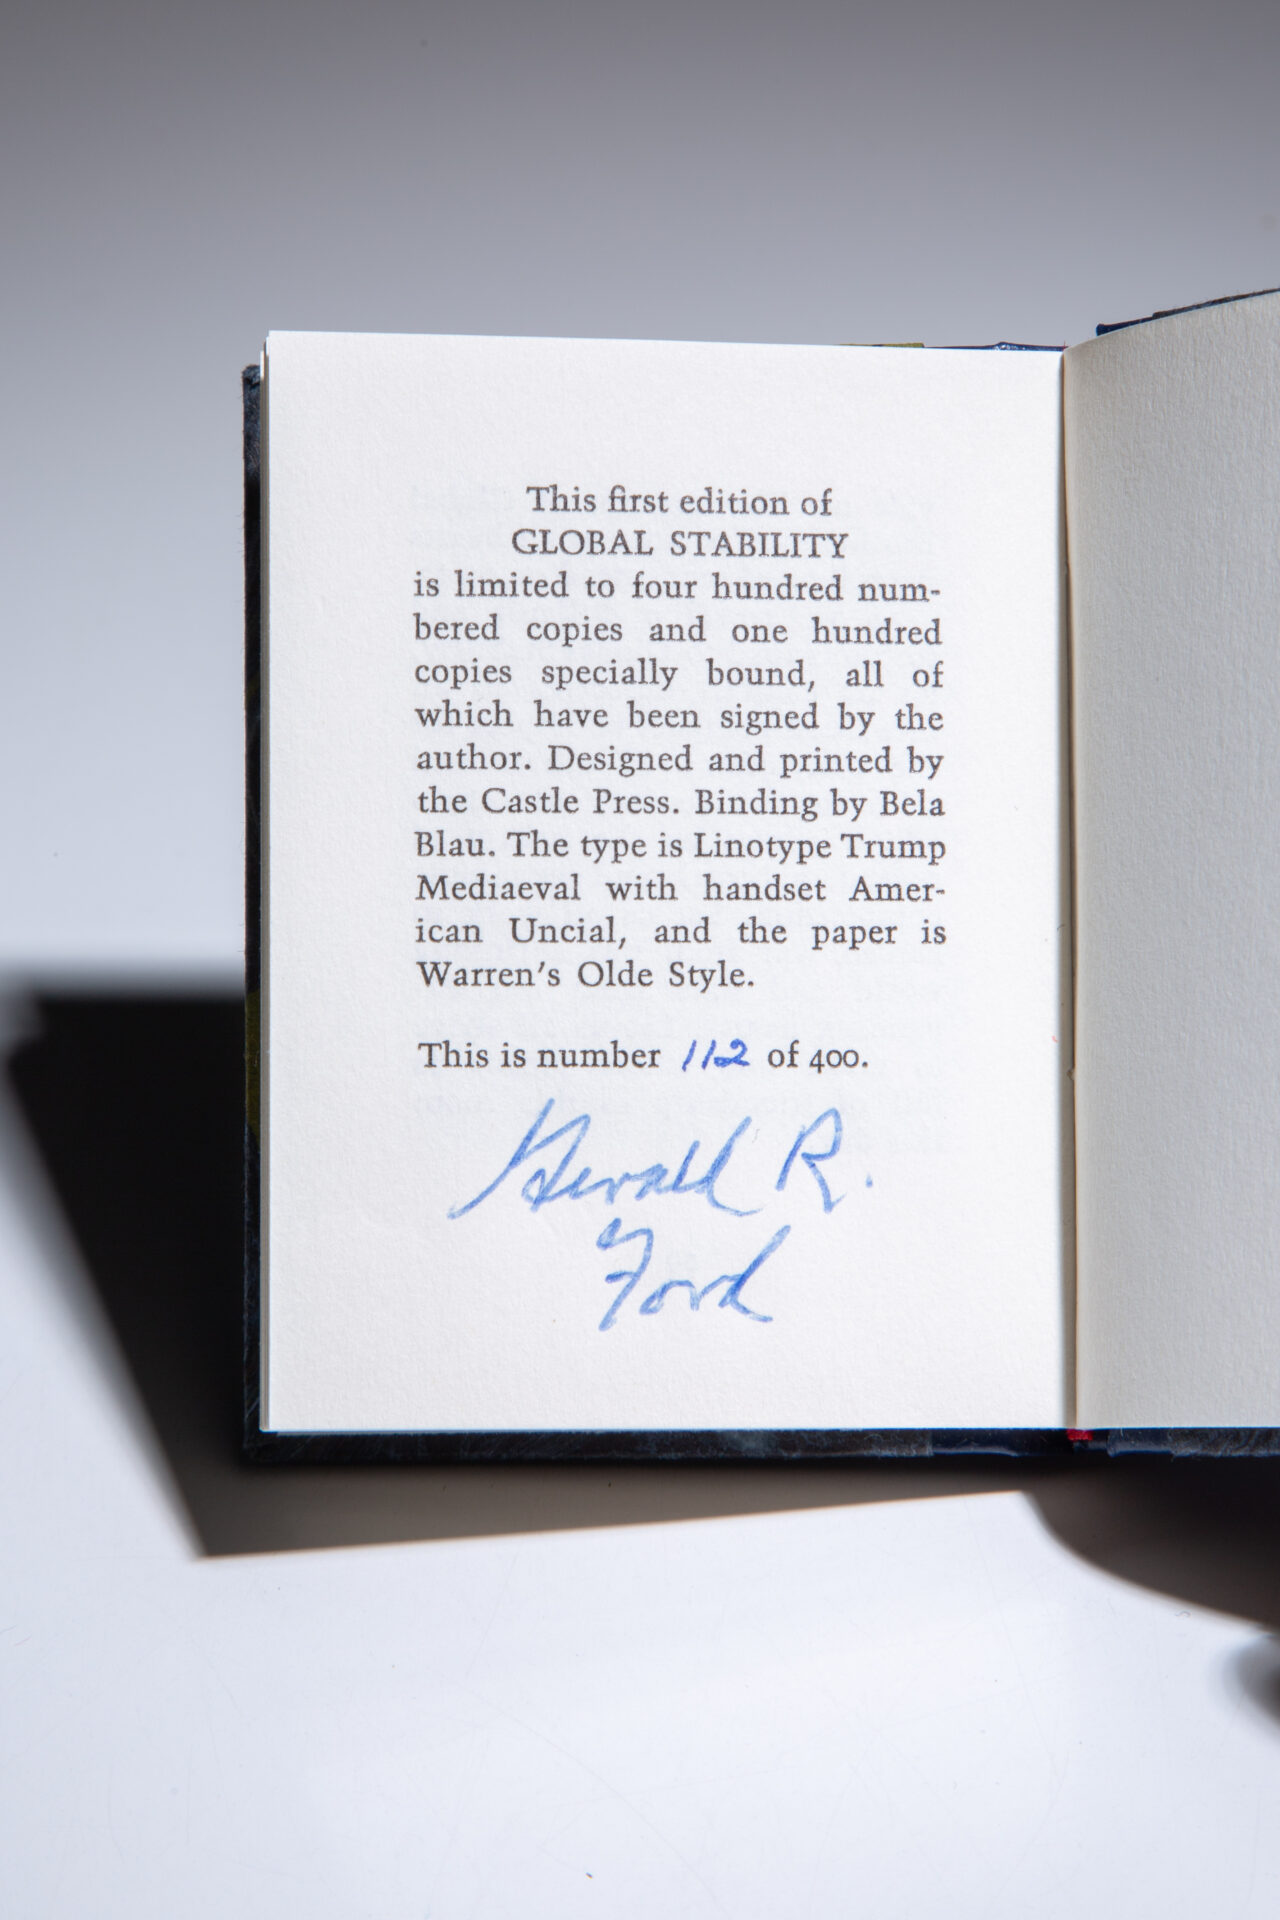 This first edition of
GLOBAL STABILITY
is limited to four hundred num-
bered copies and one hundred
copies specially bound, all of
which have been signed by the
author. Designed and printed by
the Castle Press. Binding by Bela
Blau. The type is Linotype Trump
Mediaeval with handset Amer-
ican Uncial, and the paper is
Warren's Olde Style.
This is number 112 of 400.
Gerald R.
Ford